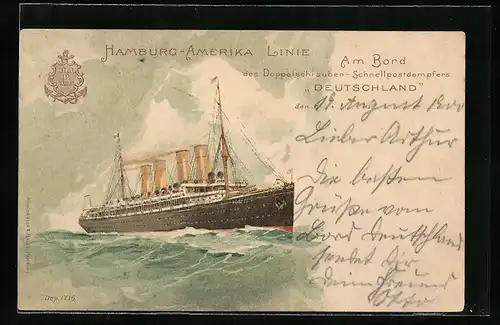 HAMBURG-AMERIKA LINIE
Am Bord
des Doppelschrauben-Schnellpostdampfers
„DEUTSCHLAND"
den 19. August
Lieber Arthur
Die besten
Grüße vom
Bord Deutschland
sendet Dir
Dein Freund
Otto
Dep. 1716